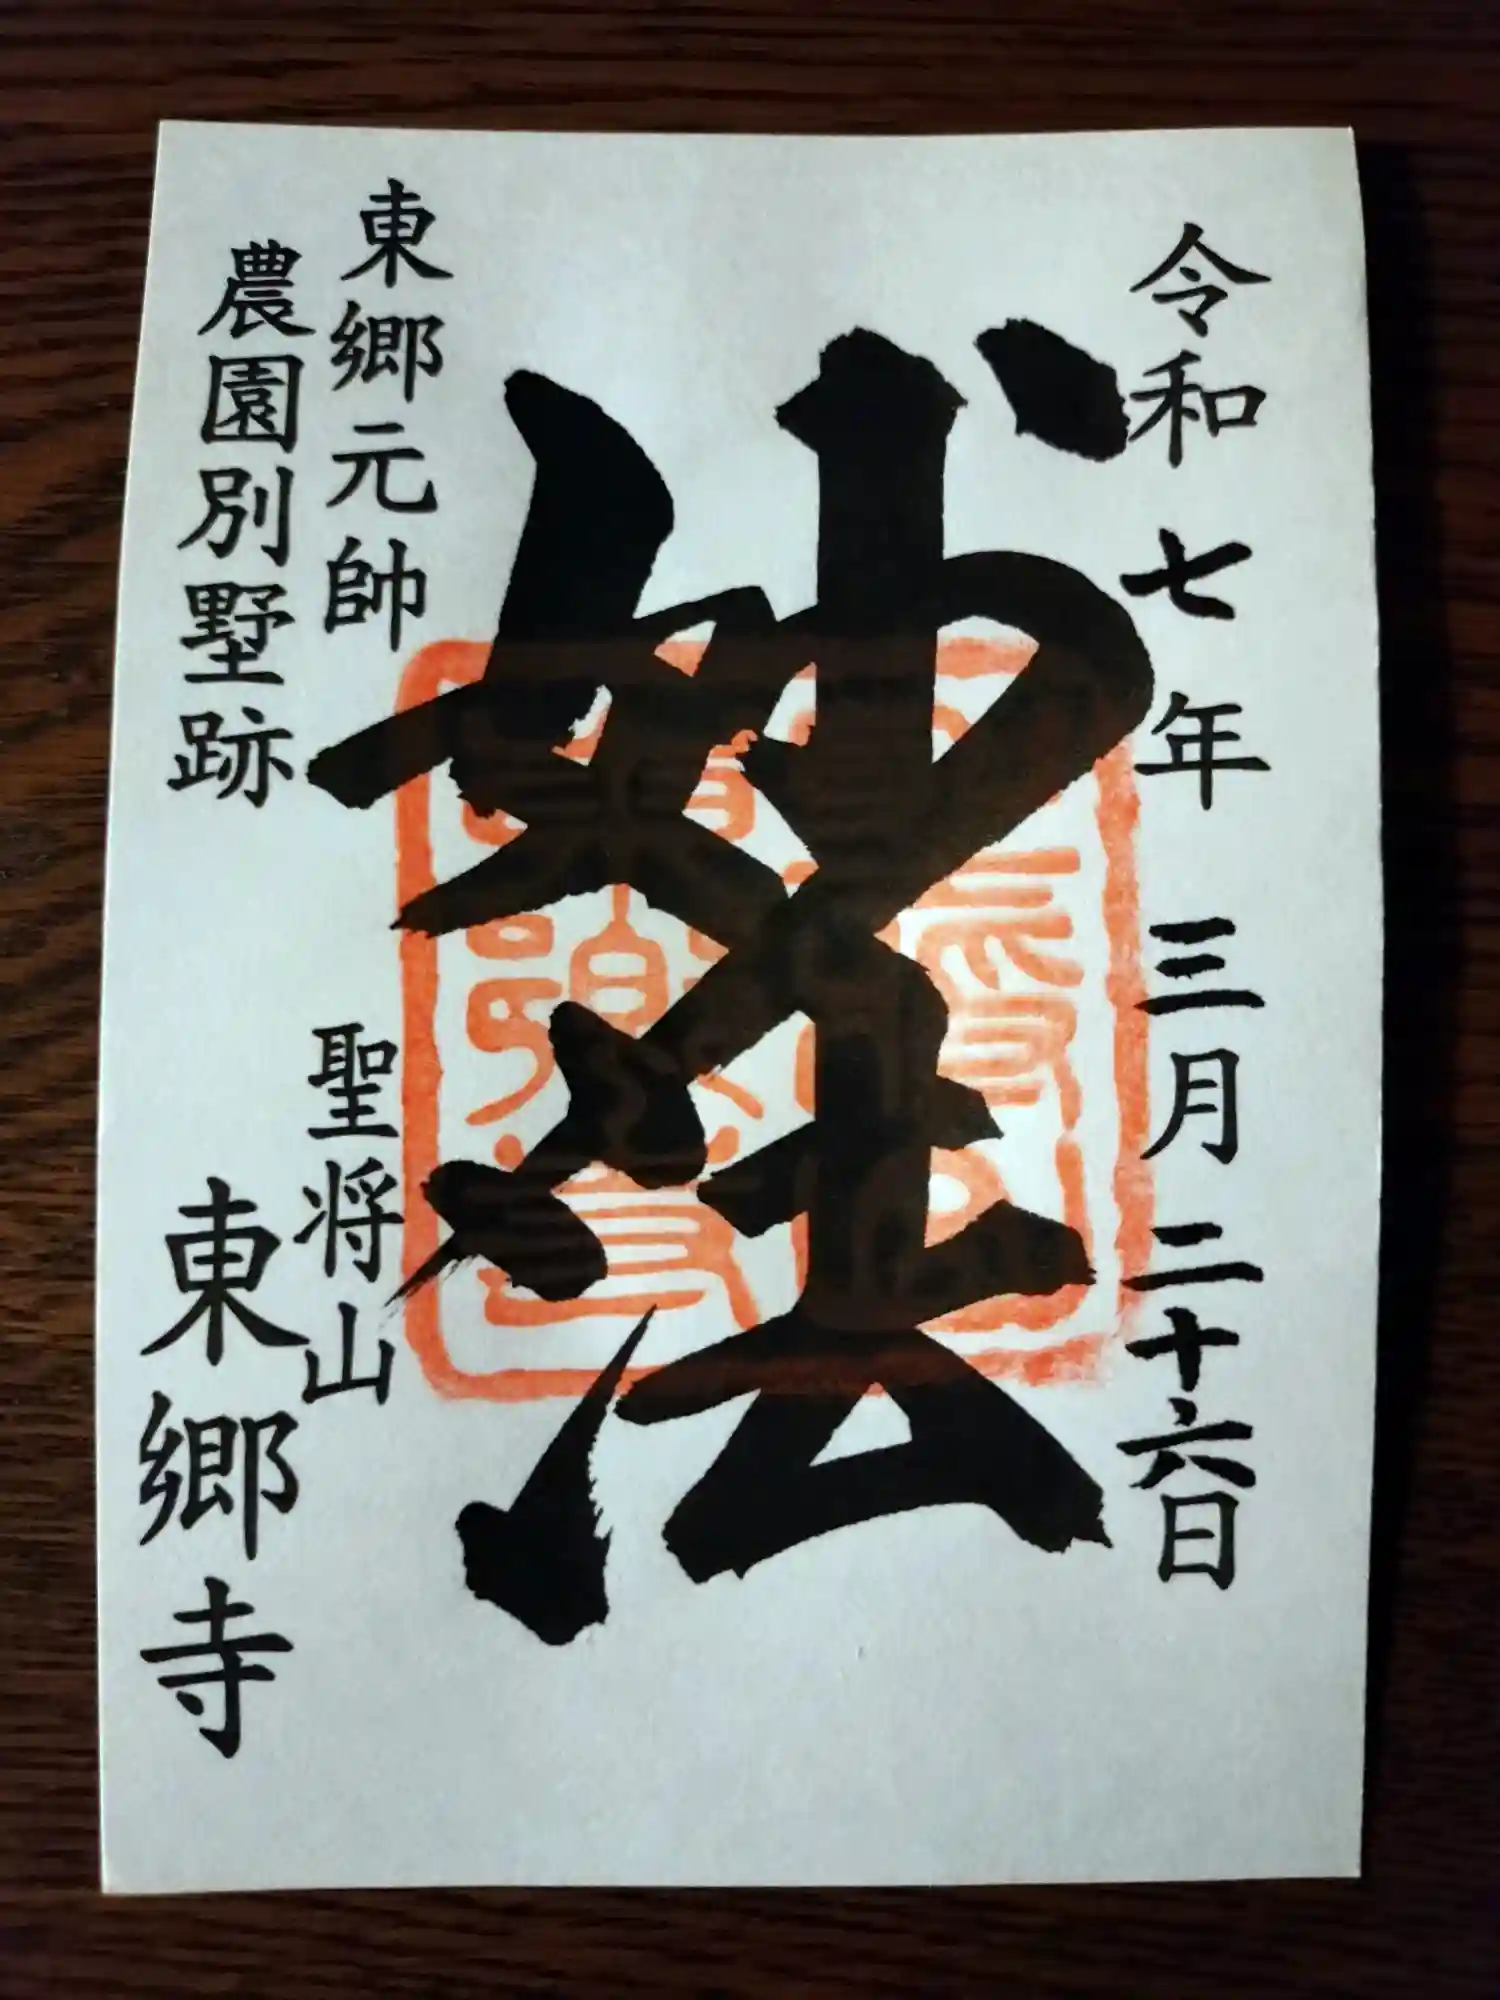 令和七年三月二十六日
妙法
東郷元帥
農園別墅跡
聖将山
東郷寺